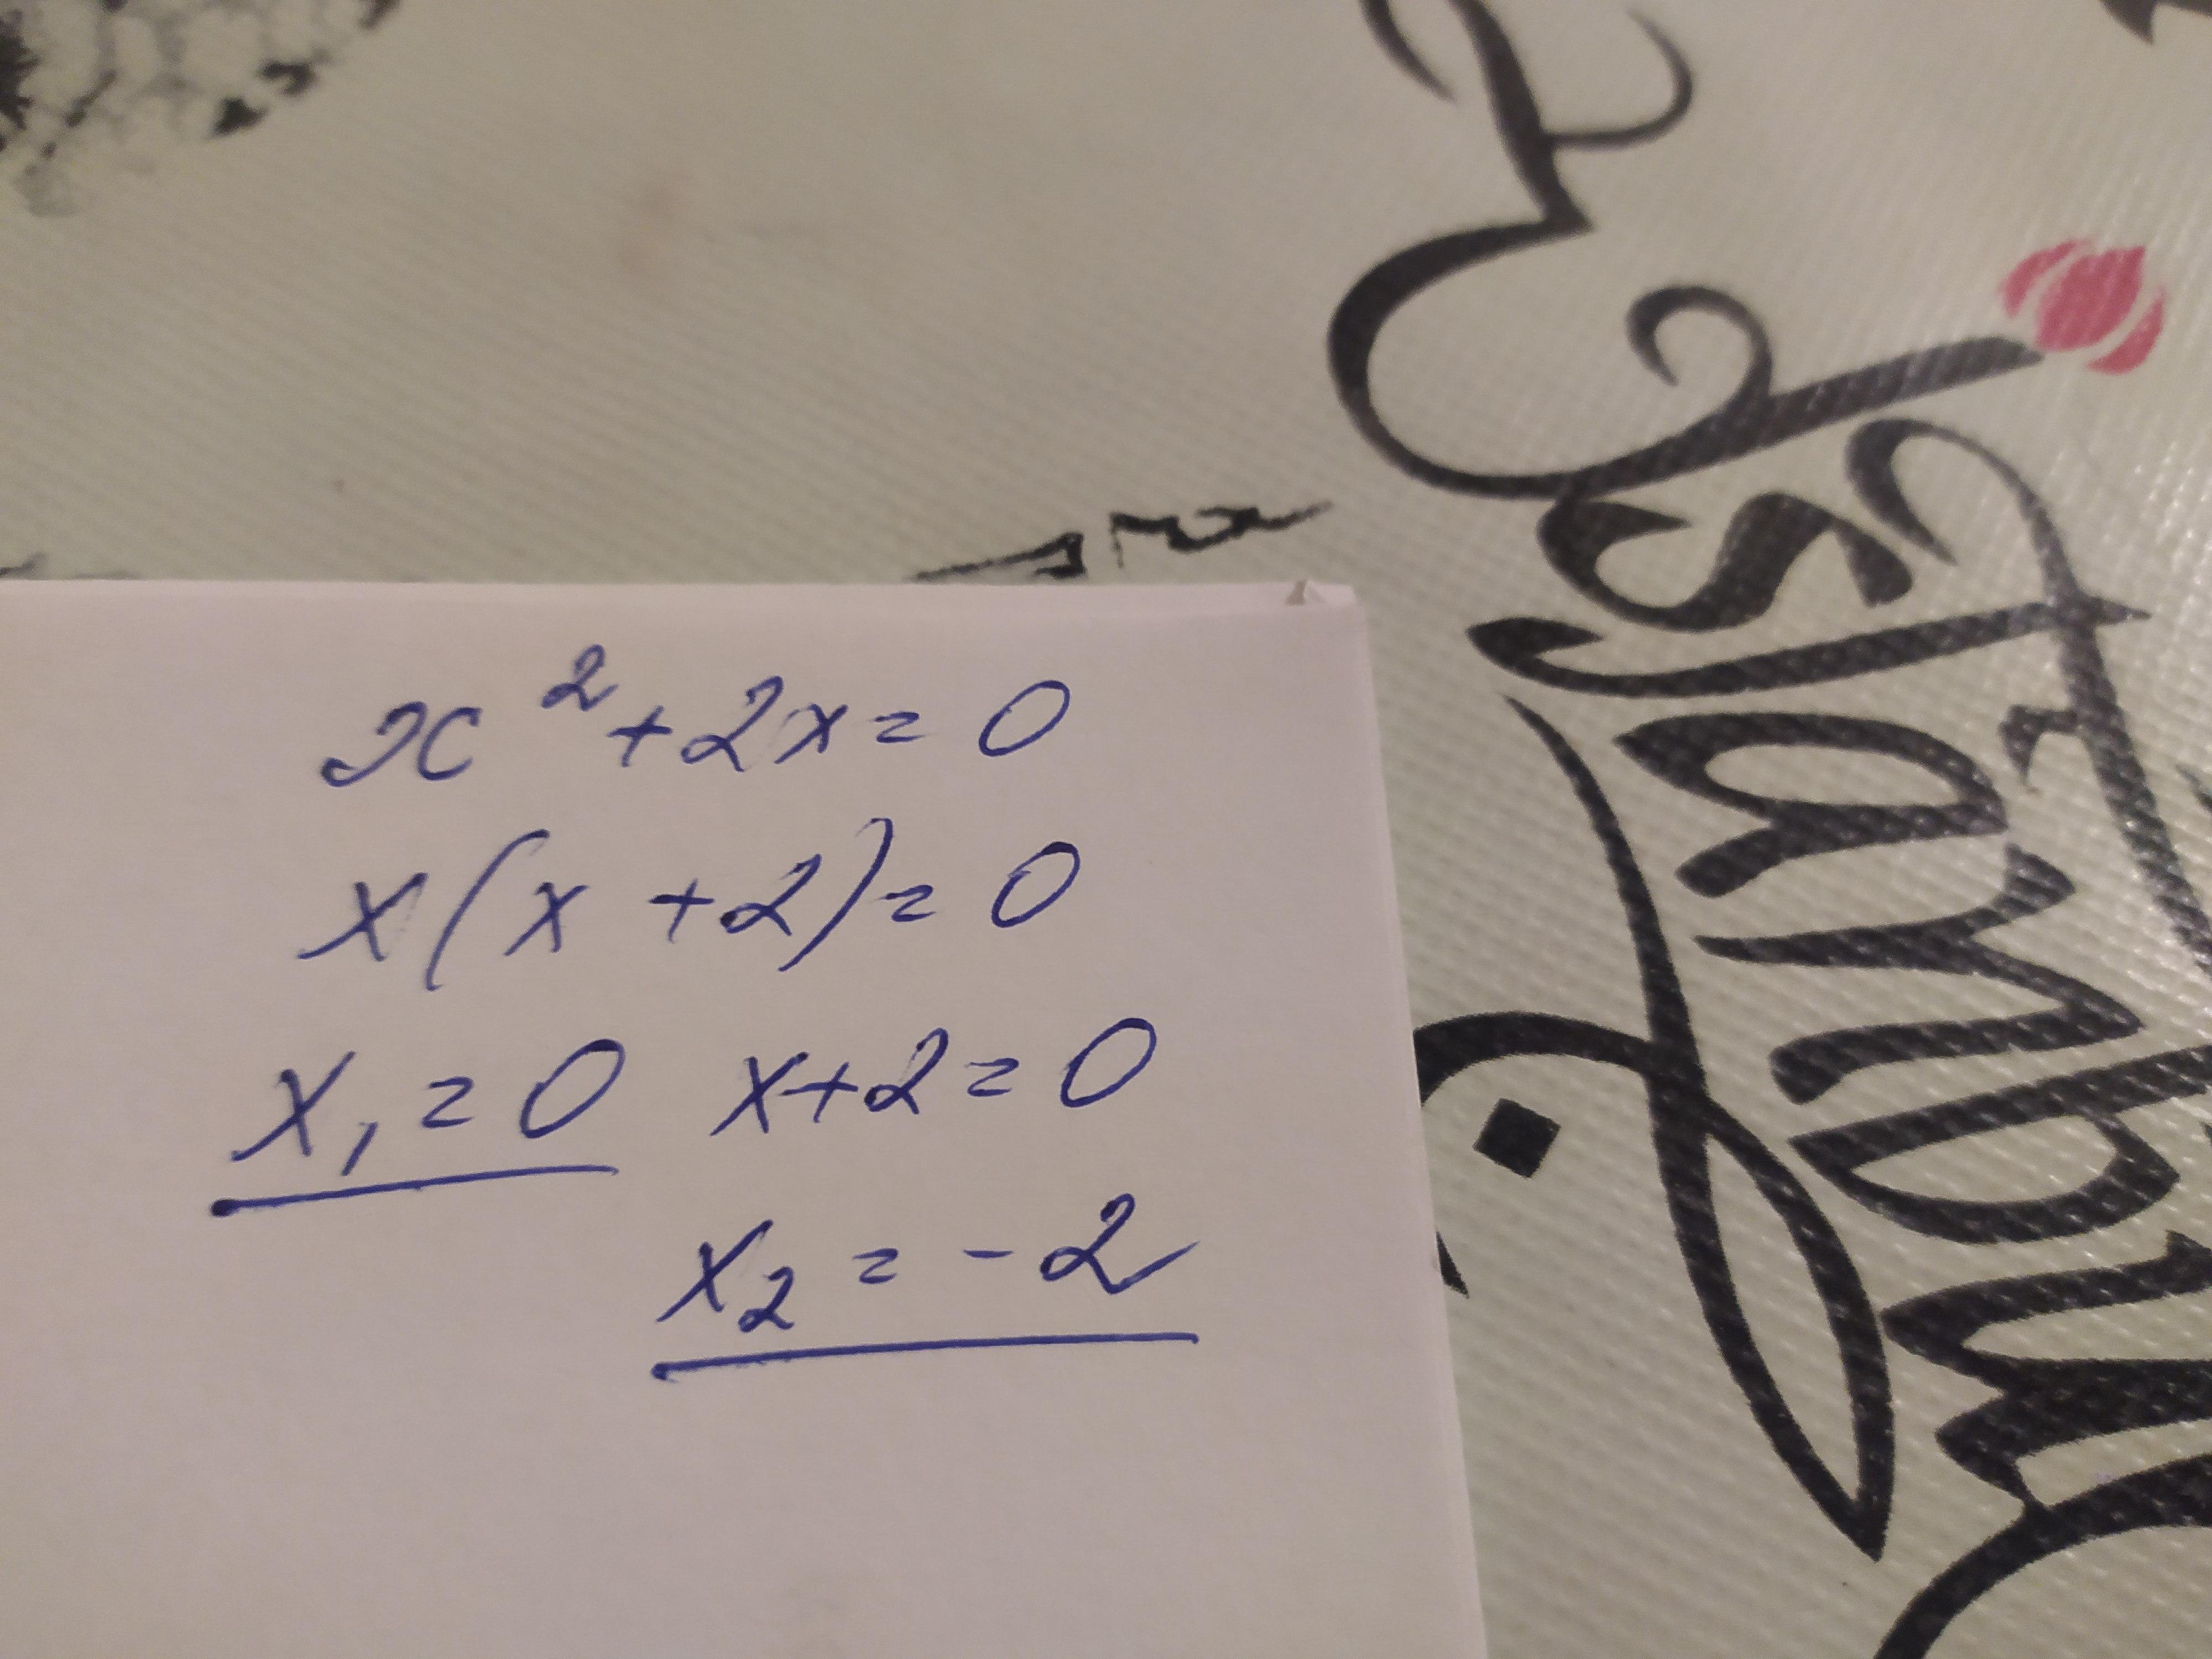 x² + 2x = 0
x(x + 2) = 0
x₁ = 0 x + 2 = 0
x₂ = -2
Istanbul